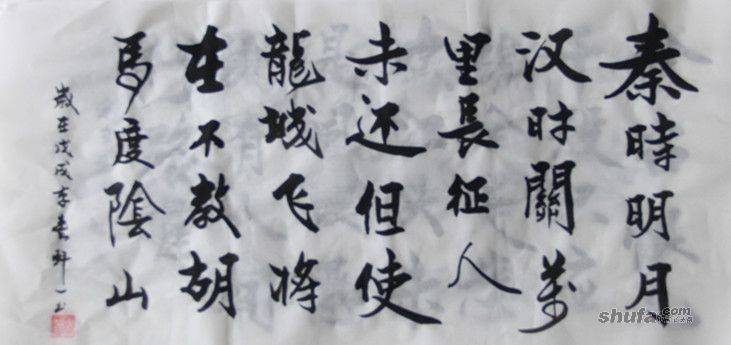 秦時明月
汉时關萬
里長征人
未还但使
龍城飞将
在不教胡
馬度陰山
歲在戊戌年春一书
shufa.com